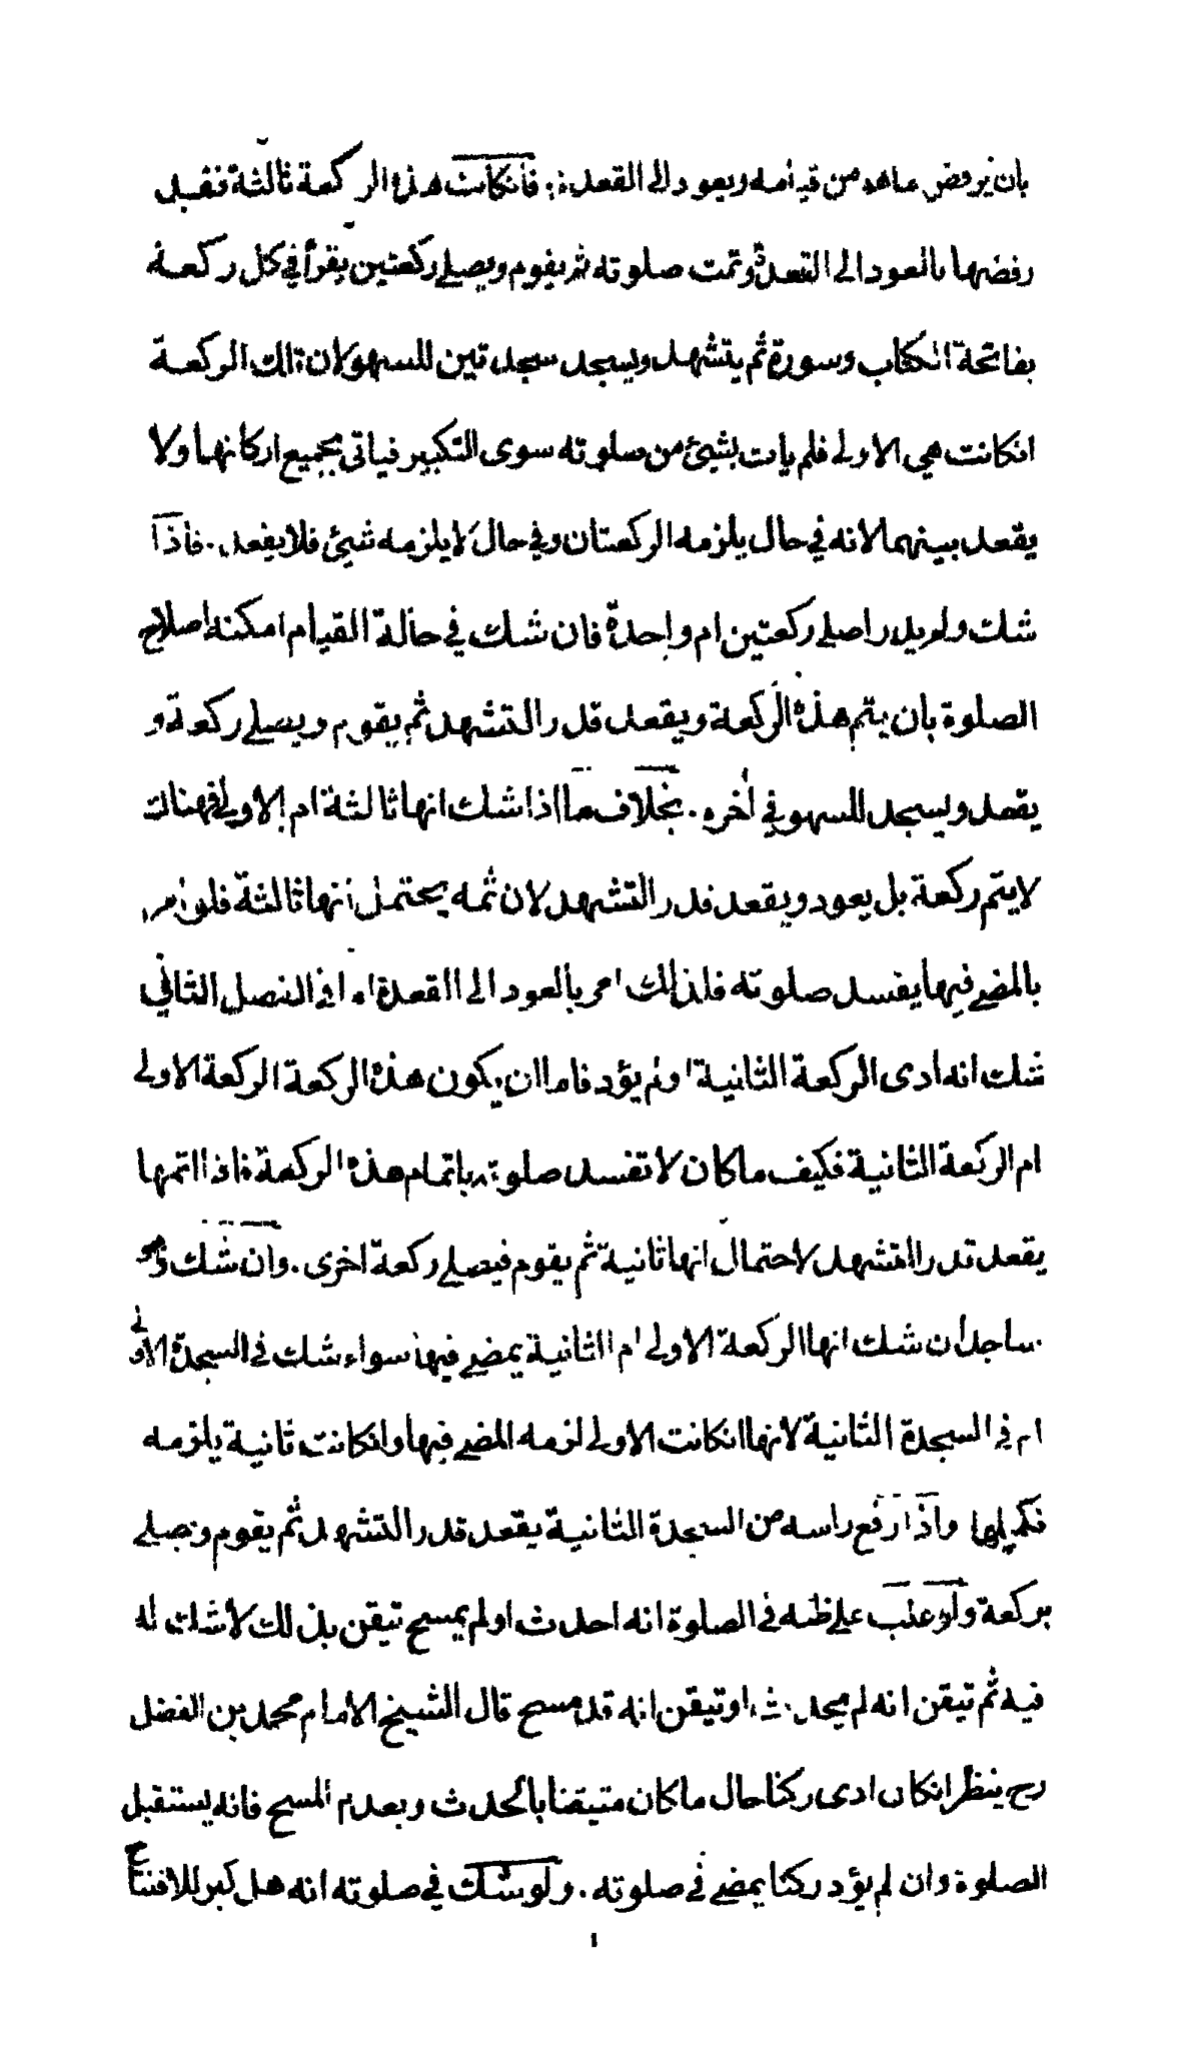 بان يرفض ماهو من قيامه ويعود الى القعدة؛ فانكانت هذه الركعة ثالثة فقبل
رفضها بالعود الى القعدة وتمت صلوته ثم يقوم ويصلے ركعتين يقرأ في كل ركعة
بفاتحة الكتاب وسورة ثم يتشهد ويسجد سجدتين للسهو لان تلك الركعة
انكانت هي الاولى فلم يات بشئ من صلوته سوى التكبير فياتى بجميع اركانها ولا
يقعد بينهما لانه في حال يلزمه الركعتان وفي حال لا يلزمه شئ فلا يفعد. فاذا
شك ولم يدر اصلے ركعتين ام واحدة فان شك في حالة القيام امكنه اصلاح
الصلوة بان يتم هذه الركعة ويقعد قدر التشهد ثم يقوم ويصلے ركعة و
يقعد ويسجد للسهو في أخره. بخلاف ما اذا شك انها ثالثة ام الاولى فهناك
لا يتم ركعة بل يعود ويقعد قدر التشهد لان ثمه يحتمل انها ثالثة فلو امر
بالمضے فيها يفسد صلوته فلذلك امر بالعود الى القعدة اما في الفصل الثاني
شك انه ادى الركعة الثانية او لم يؤد فاما ان يكون هذه الركعة الركعة الاولى
ام الركعة الثانية فكيف ما كان لا تفسد صلوته باتمام هذه الركعة فاذا اتمها
يقعد قدر التشهد لاحتمال انها ثانية ثم يقوم فيصلے ركعة اخرى. وان شك وهو
ساجد ان شك انها الركعة الاولى ام الثانية يمضے فيها سواء شك في السجدة الاولى
ام في السجدة الثانية لانها انكانت الاولى لزمه المضے فيها وانكانت ثانية يلزمه
تكميلها واذا رفع راسه من السجدة الثانية يقعد قدر التشهد ثم يقوم ويصلے
بركعة ولو غلب على ظنه في الصلوة انه احدث او لم يمسح تيقن بذلك لا شك له
فيه ثم تيقن انه لم يحدث او تيقن انه قد مسح قال الشيخ الامام محمد بن الفضل
رح ينظر انكان ادى ركنا حال ما كان متيقنا بالحدث وبعدم المسح فانه يستقبل
الصلوة وان لم يؤد ركنا يمضے في صلوته. ولو شك في صلوته انه هل كبر للافتتاح